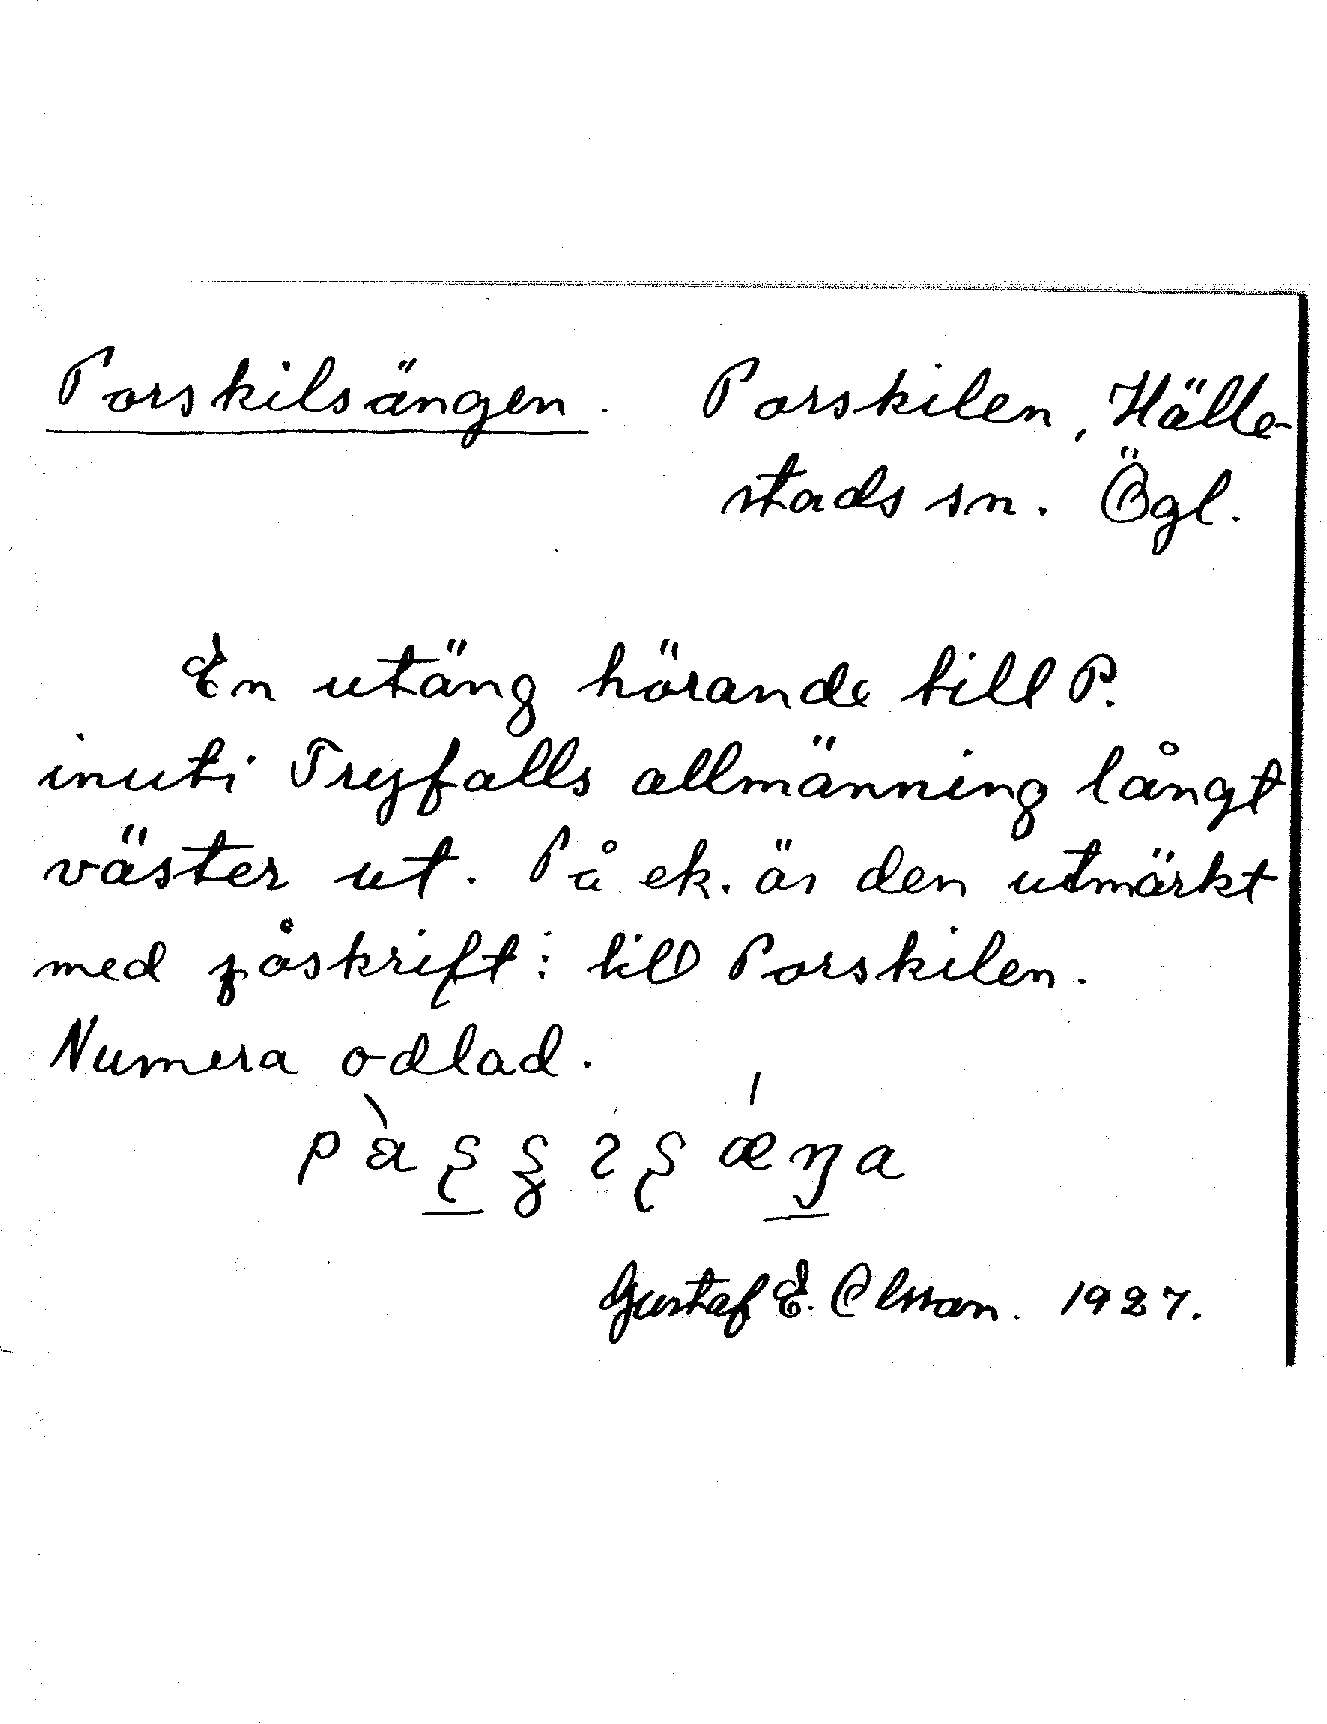 Porskilsängen. Porskilen, Hälle-
stads sn. Ögl.
En utäng hörande till P.
inuti Tryfalls allmänning långt
väster ut. På ek. är den utmärkt
med påskrift: till Porskilen.
Numera odlad.
Gustaf E. Olsson. 1927.